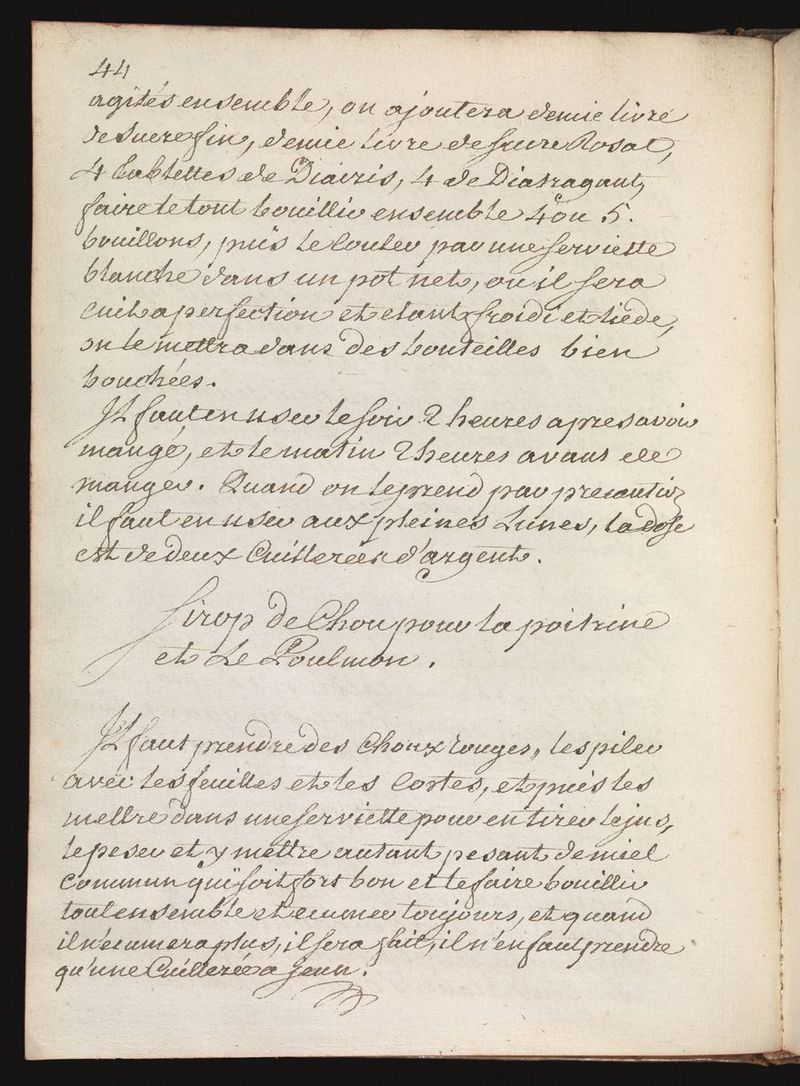 44
agités ensemble, on ajoutera demie livre
de Sucre fin, demie livre de sucre Rosat,
4 tablettes de Diairis, 4 de Diatragant,
faire le tout bouillir ensemble 4 ou 5.
bouillons, puis le Couler par une serviette
blanche dans un pot net, ou il sera
cuit a perfection et etant froidi et tiéde,
on le mettra dans des bouteilles bien
bouchées.
Il faut en user le soir 2 heures apres avoir
mangé, et le matin 2 heures avant de
manger. Quand on le prend par precaution
il faut en user aux pleines Lunes, la dose
est de deux Cuillereés d'argent.
Sirop de Chou pour la poitrine
et Le Poulmon.
Il faut prendre des Choux rouges, les piler
avec les feuilles et les Cortes, et puis les
mettre dans une serviette pour en tirer le jus,
le peser et y mettre autant pesant de miel
Commun qui soit fort bon et le faire bouillir
tout ensemble et ecumer toujours, et quand
il n'ecumera plus, il sera fait, il n'en faut prendre
qu'une Cuillereé a jeun.